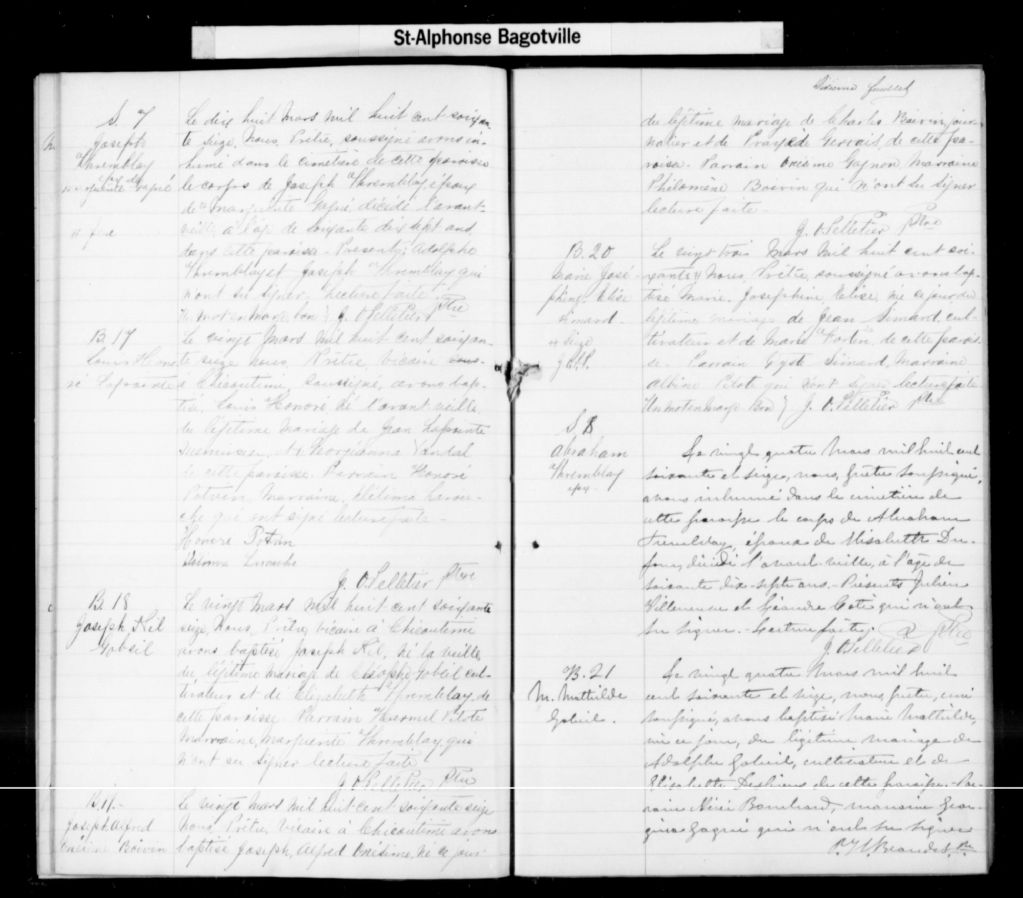 St-Alphonse Bagotville
S. 7
Joseph
Thremblay
Le dix huit Mars mil huit cent soixan
te seize, Nous, Prêtre, soussigné avons in-
humé dans le cimetière de cette paroisse
le corps de Joseph Thremblay époux
de Marguerite Gagné, décédé l'avant-
veille à l'age de soixante dix sept ans
dans cette paroisse. Présents, Adolphe
Thremblay et Joseph Thremblay qui
n'ont su signer. Lecture faite.
Un mot en marge bon} J. O Pelletier Ptre
B. 17
Louis Hono
ré Lapointe
Le vingt Mars mil huit cent soixan-
te seize nous, Prêtre, vicaire
à Chicoutimi, soussigné, avons bap-
tisé, Louis Honoré né l'avant veille
du légitime mariage de Jean Lapointe
Menuisier, et Georgianna Vandal
de cette paroisse. Parrain Honoré
Potvin Marraine,
che qui ont signé lecture faite.
Honoré
J. O Pelletier Ptre
B. 18
Joseph Kil
Gobeil
Le vingt Mars mil huit cent soixante
seize, Nous, Prêtre, vicaire à Chicoutimi
avons baptisé Joseph Kil, né la veille
du légitime mariage de Gobeil cul-
tivateur et de Elizabeth Thremblay de
cette paroisse. Parrain Pilote
Marraine, Marguerite Thremblay qui
n'ont su signer lecture faite
J. O Pelletier Ptre
Joseph Alfred
Onésime Boivin
Le vingt Mars mil huit cent soixante seize
Nous Prêtre, Vicaire à Chicoutimi avons
baptisé Joseph, Alfred Onésime, né ce jour
du légitime mariage de Charles Boivin jour-
nalier et de Praxède Gervais, de cette pa-
roisse. Parrain Onésime Gagnon Marraine
Philomène Boivin qui n'ont su signer
lecture faite.
J. O Pelletier Ptre
B. 20
Marie José-
phine Elise
Simard.
Le vingt trois Mars mil huit cent soi-
xante Nous Prêtre, soussigné avons bap-
tisé Marie, Joséphine, Elise, née ce jour du
légitime mariage de Jean Simard cul-
tivateur et de Marie Fortin de cette parois-
se. Parrain Simard, Marraine
Pilote qui signer lecture faite
Un mot en marge Bon} J. O. Pelletier Ptre
S. 8
Abraham
Thremblay
Le vingt quatre Mars mil huit cent
soixante et seize, nous, prêtre soussigné,
avons inhumé dans le cimetière de
cette paroisse le corps de Abraham
Tremblay, époux de Elisabeth Du-
four, décédé l'avant-veille, à l'âge de
soixante dix-sept ans. - Présents Julien
Villeneuve et Léandre Coté qui n'ont
su signer. - Lecture faite.
J. O Pelletier Ptre
B. 21
M. Mathilde
Gobeil.
Le vingt quatre Mars mil huit
cent soixante et seize, nous prêtre, curé
soussigné, avons baptisé Marie Mathilde,
née ce jour, du légitime mariage de
Adolphe Gobeil, cultivateur et de
Elisabeth Desbiens de cette paroisse. Par-
rain Boucbard, marraine Geor-
gina Gagné qui n'ont su signer